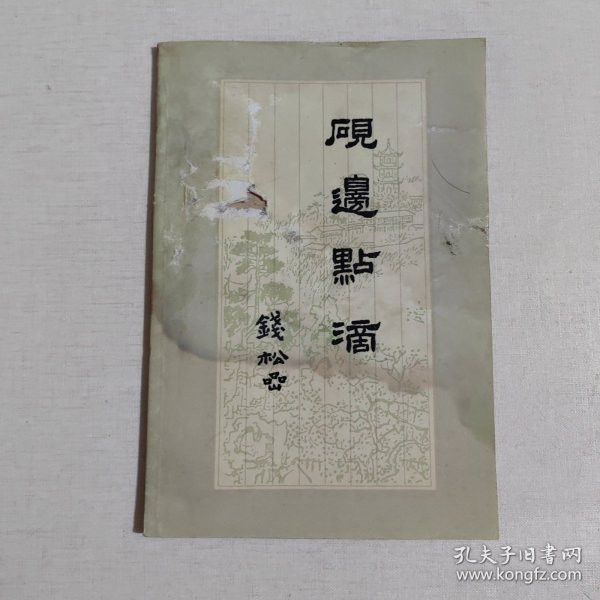 硯邊點滴
錢松喦
孔夫子旧书网
www.kongfz.com